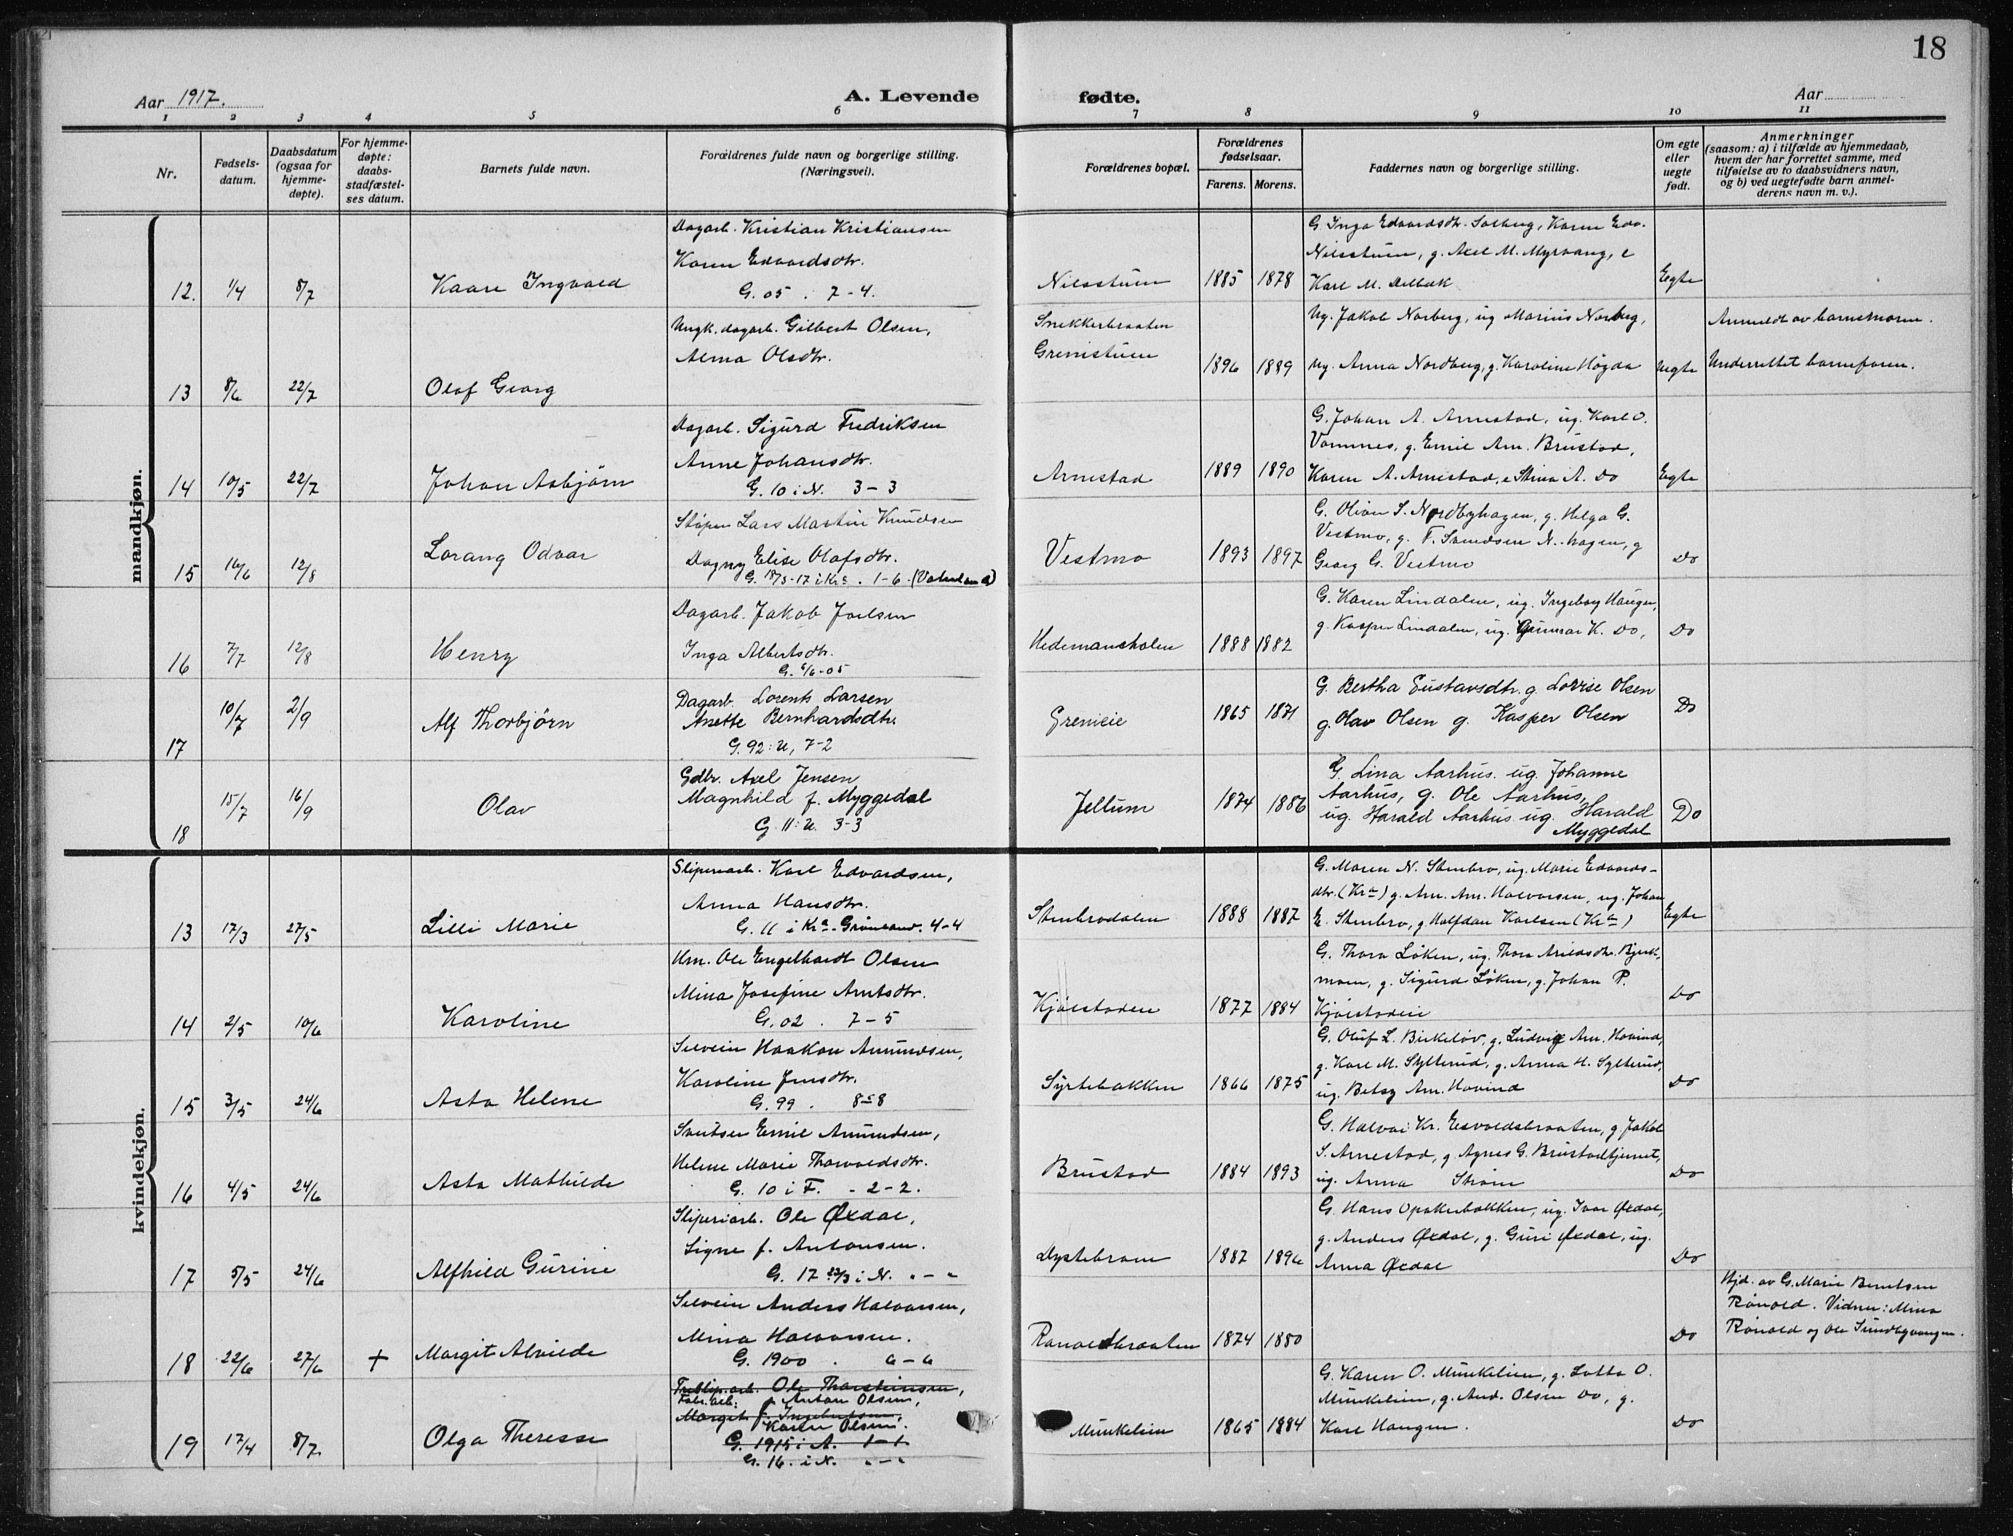 18
Aar 1917.
A. Levende fødte.
Aar
1 2 3 4 5 6 7 8 9 10 11
Nr.
Fødsels-
datum.
Daabsdatum
(ogsaa for
hjemme-
døpte).
For hjemme-
døpte:
daabs-
stadfæstel-
ses datum.
Barnets fulde navn.
Forældrenes fulde navn og borgerlige stilling.
(Næringsvei).
Forældrenes bopæl.
Forældrenes
fødselsaar.
Farens. Morens.
Faddernes navn og borgerlige stilling.
Om egte
eller
uegte
født.
Anmerkninger
(saasom: a) i tilfælde av hjemmedaab,
hvem der har forrettet samme, med
tilføielse av to daabsvidners navn,
og b) ved uegtefødte barn anmel-
derens navn m. v.).
mandkjøn.
Dagarb. Kristian Kristiansen
Karen Edvardsdtr.
G. 05 . 7-4.
12. 1/4 8/7 Kaare Ingvald
Nilsstuen 1885 1878
G. Inga Edvardsdtr. Solberg, Karen Edv.
Nilsstuen, g. Axel M. Myrvang, e
Karl M. Delbæk
Egte
Ungk. dagarb. Gilbert Olsen,
Alma Olsdtr.
13 8/6 22/7 Olaf Georg
Snekkerbraaten
Grenistuen 1896 1889
Ug. Jakob Norberg, ug Marius Norberg,
ug. Anna Nordberg, g. Karoline Høgda
Uegte
Anmeldt av barnemoren.
Underrettet barnefaren.
Dagarb. Sigurd Fredriksen
Anne Johansdtr.
G. 10 i N. 3-3
14 10/5 22/7 Johan Asbjørn
Arnestad 1889 1890
G. Johan A. Arnestad, ug. Karl O.
Vamnes, g. Emil Am. Brustad,
Karen A. Arnestad, e Stina A. Do
Egte
Støper Lars Martin Knudsen
Dagny Elise Olafsdtr.
G. 18/3-17 i Kra. 1-6.
15 16/6 12/8 Lorang Odvar
Vestmo 1893 1897
G. Olivar S. Nordbyhagen, g. Helga G.
Vestmo, g. F. Svendsen N. hagen, g
Georg G. Vestmo
Do
Dagarb. Jakob Joelsen
Inga Albertsdtr.
G. 6/6-05
16 7/7 12/8 Henry
Hedemanskolen 1888 1882
G. Karen Lindalen, ug. Ingeborg Haugen,
g. Kasper Lindalen, ug. Gunnar K. Do,
Do
Dagarb. Lorents Larsen
Anette Bernhardsdtr.
G. 92: U, 7-2
17 10/7 2/9 Alf Thorbjørn
Grenieie 1865 1871
G. Bertha Gustavsdtr. g. Lovise Olsen
g. Olav Olsen g. Kasper Olsen
Do
Gdbr. Axel Jensen
Magnhild f. Myggedal
G. 11: U. 3-3
18 15/7 16/9 Olav
Jellum 1874 1886
G. Lina Aarhus. ug. Johanne
Aarhus, g. Ole Aarhus,
ug. Harald Aarhus ug. Harald
Myggedal
Do
kvindekjøn.
Sliperiarb. Karl Edvardsen,
Anna Hansdtr.
G. 11 i Kra. Grønland. 4-4
13 17/3 27/5 Lilli Marie
Stenbrodalen 1888 1887
G. Maren N. Stenbro, ug. Marie Edvards-
dtr. (Kra) g. Am. Am. Halvorsen, ug. Johan
E. Stenbro, g. Halfdan Karlsen (Kra)
Egte
Um. Ole Engelhardt Olsen
Mina Josefine Arntsdtr.
G. 02 . 7-5
14 2/5 10/6 Karoline
Kjølstaden 1877 1884
G. Thora Løken, ug. Thora Arildsdtr. Bjerk-
moen, g. Sigurd Løken, g. Johan P.
Kjølstadeie
Do
Selveier Haakon Amundsen,
Karoline Jensdtr.
G. 99 . 8-8
15 3/5 24/6 Asta Helene
Syrtebakken 1866 1875
G. Oluf L. Birkeløv, g. Ludvig Am. Hovind,
g. Karl M. Sylterud, g. Anna H. Sylterud,
ug. Betsy Am. Hovind
Do
Emil Amundsen,
Helene Marie Thorvaldsdtr.
G. 10 i F. - 2-2.
16 4/5 24/6 Asta Mathilde
Brustad 1884 1893
G. Halvor Kr. Eisvoldsbraaten, g. Jakob
S. Arnestad, g. Agnes G. Brustadtjernet,
ug. Anna Strøm
Do
Sliperiarb. Ole Øxdal,
Signe f. Antonsen.
G. 17 23/3 i N. „ - „
17 5/5 24/6 Alfhild Gurine
Dystebroen 1887 1896
G. Hans Opakerbakken, ug. Ivar Øxdal,
g. Anders Øxdal, g. Guri Øxdal, ug.
Anna Øxdal
Do
Selveier Anders Halvorsen,
Mina Halvorsen.
G. 1900 . 6-6
18 22/6 27/6 + Margit Alvilde
Ranoldbraaten 1874 1880
Do
Hjd. av G. Marie Berntsen
Rånold. Vidner: Mina
Rånold og Ole Sundbyvangen.
Træslip. arb. Ole Thorstensen,
Fabr. arb. Anton Olsen,
Margit f. Ingebretsen,
Karen Olsen.
G. 1915 i A. 1-1
G. 16. i N. „ - „
19 17/4 8/7 Olga Therese
Munkelien 1865 1884
G. Karen O. Munkelien, g. Lotta O.
Munkelien, g. And. Olsen Do, g.
Karl Haugen.
Do